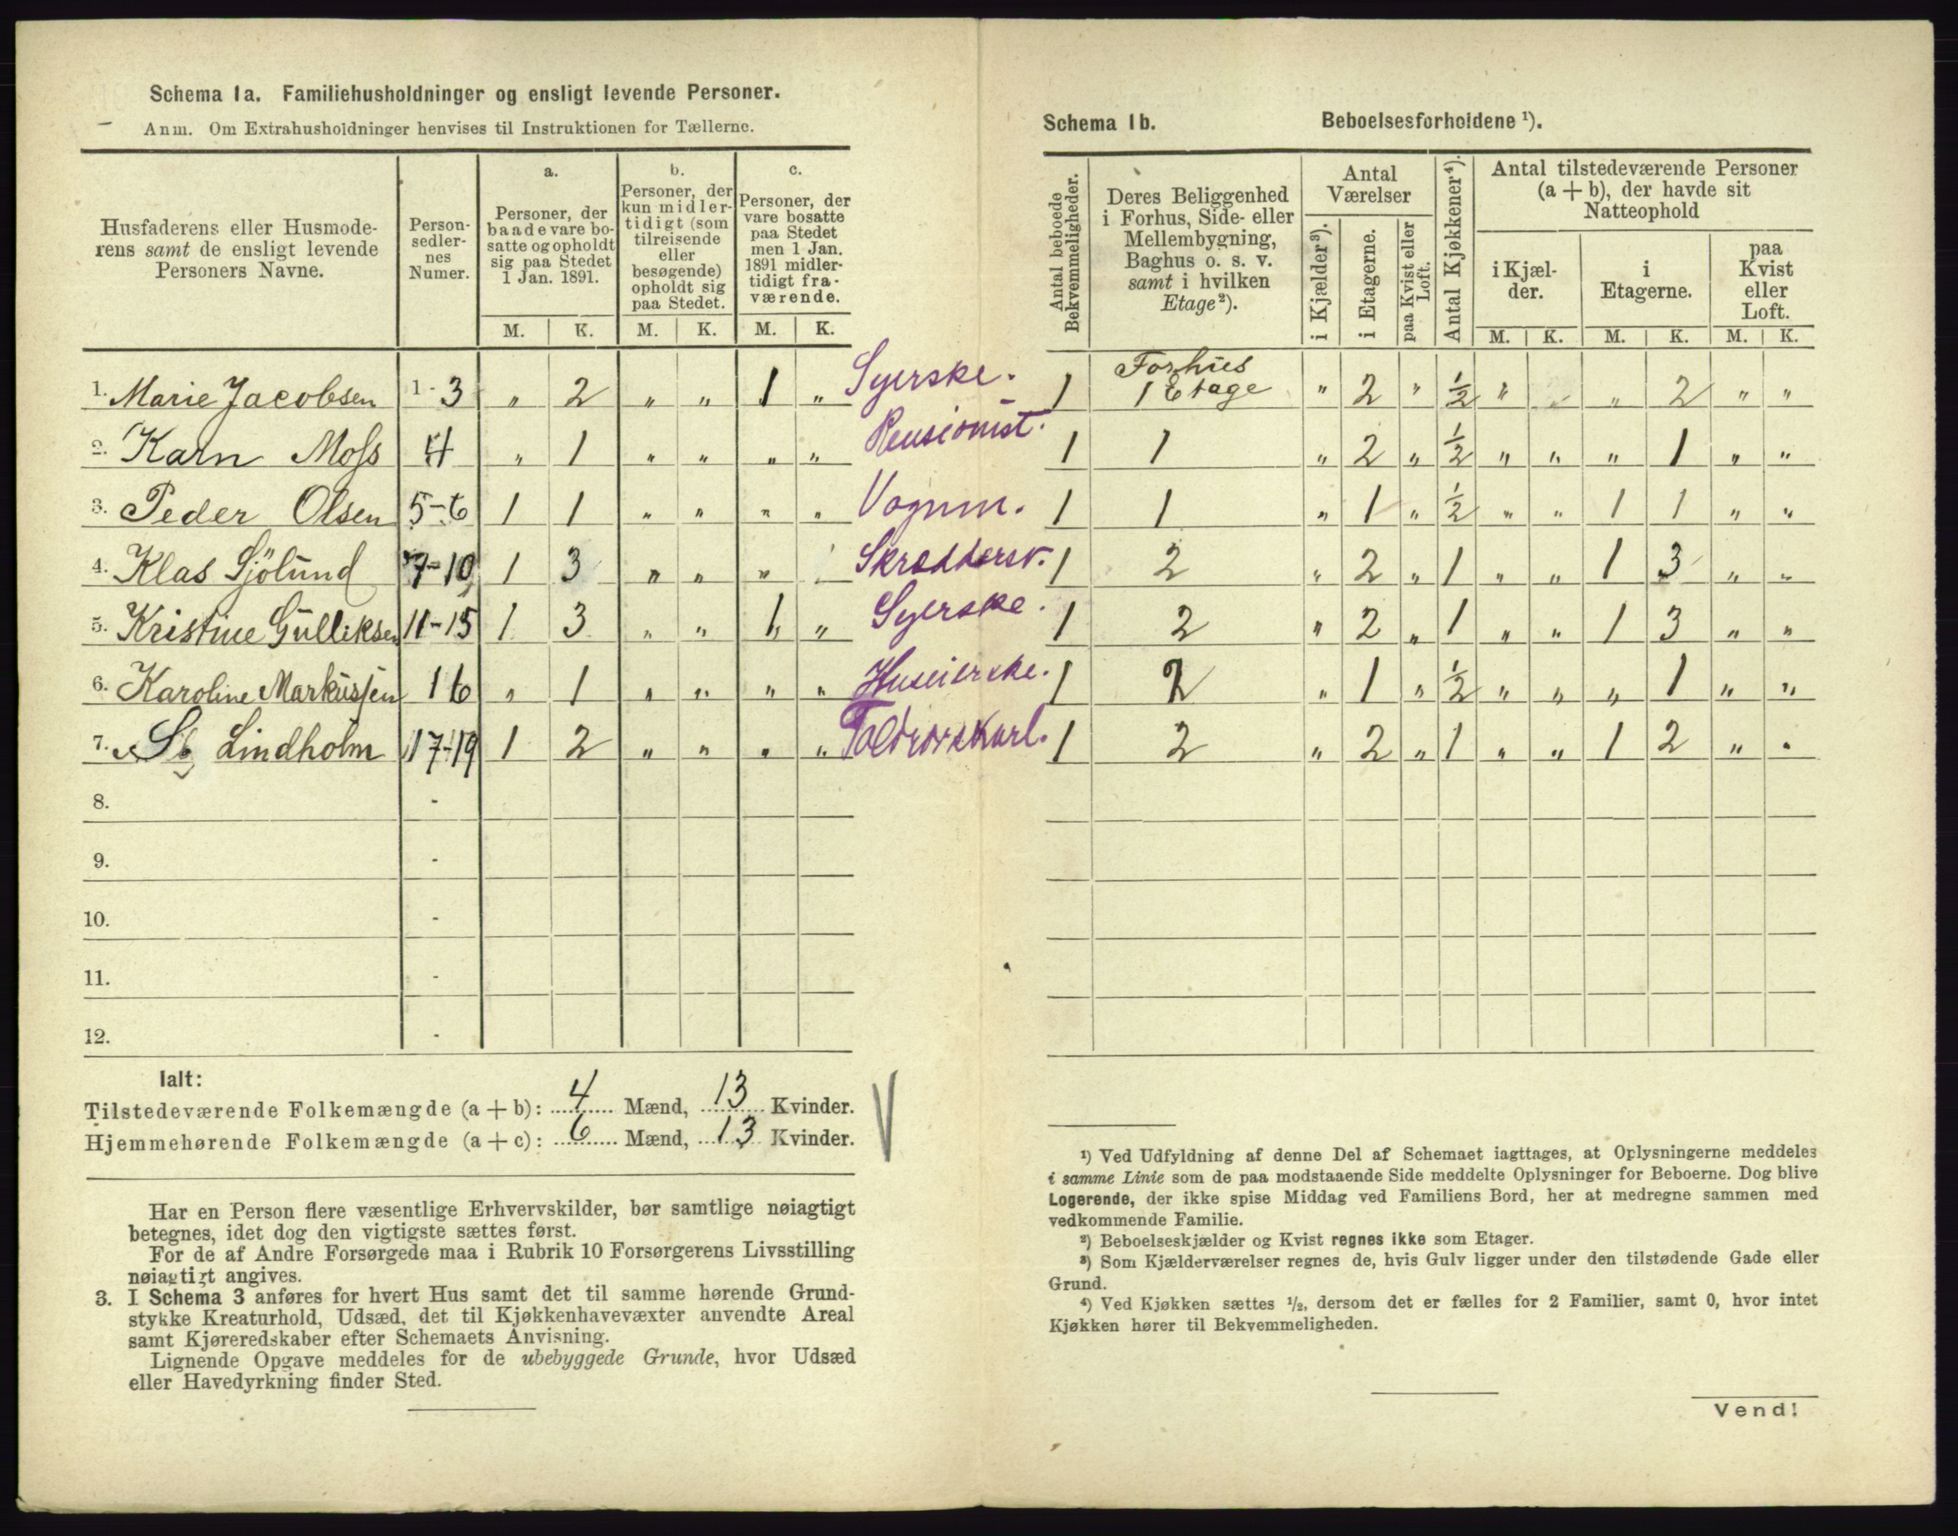 Schema 1a. Familiehusholdninger og ensligt levende Personer.
Anm. Om Extrahusholdninger henvises til Instruktionen for Tællerne.
Husfaderens eller Husmoderens samt de ensligt levende Personers Navne.
Personsedlernes Numer.
a.
Personer, der baade vare bosatte og opholdt sig paa Stedet 1 Jan. 1891.
b.
Personer, der kun midlertidigt (som tilreisende eller besøgende) opholdt sig paa Stedet.
c.
Personer, der vare bosatte paa Stedet men 1 Jan. 1891 midlertidigt fraværende.
M. K. M. K. M. K.
1. Marie Jacobsen 1-3 " 2 " " 1 " Syerske.
2. Karn Moss 4 " 1 " " " " Pensionist.
3. Peder Olsen 5-6 1 1 " " " " Vognm.
4. Klas Sjölund 7-10 1 3 " " " Skræddersv.
5. Kristine Gulliksen 11-15 1 3 " " 1 " Syerske.
6. Karoline Markussen 16 " 1 " " " " Huseierske.
7. Lindholm 17-19 1 2 " " " " Toldrorskarl.
8. -
9. -
10. -
11. -
12. -
Ialt:
Tilstedeværende Folkemængde (a + b): 4 Mænd, 13 Kvinder.
Hjemmehørende Folkemængde (a + c): 6 Mænd, 13 Kvinder.
Har en Person flere væsentlige Erhvervskilder, bør samtlige nøiagtigt
betegnes, idet dog den vigtigste sættes først.
For de af Andre Forsørgede maa i Rubrik 10 Forsørgerens Livsstilling
nøiagtigt angives.
3. I Schema 3 anføres for hvert Hus samt det til samme hørende Grund-
stykke Kreaturhold, Udsæd, det til Kjøkkenhavevæxter anvendte Areal
samt Kjøreredskaber efter Schemaets Anvisning.
Lignende Opgave meddeles for de ubebyggede Grunde, hvor Udsæd
eller Havedyrkning finder Sted.
Schema 1b. Beboelsesforholdene ¹).
Antal beboede Bekvemmeligheder.
Deres Beliggenhed i Forhus, Side- eller Mellembygning, Baghus o. s. v. samt i hvilken Etage²).
Antal Værelser
i Kjælder³).
i Etagerne.
paa Kvist eller Loft.
Antal Kjøkkener⁴).
Antal tilstedeværende Personer (a + b), der havde sit Natteophold
i Kjælder.
i Etagerne.
paa Kvist eller Loft.
M. K. M. K. M. K.
1 Forhus 1 Etage " 2 " ½ " " 2 " "
1 1 " 2 " ½ " " " 1 " "
1 1 " 1 " ½ " " 1 1 " "
1 2 " 2 " 1 " " 1 3 " "
1 2 " 2 " 1 " " 1 3 " "
1 2 " 1 " ½ " " " 1 " "
1 2 " 2 " 1 " " 1 2 " "
¹) Ved Udfyldning af denne Del af Schemaet iagttages, at Oplysningerne meddeles
i samme Linie som de paa modstaaende Side meddelte Oplysninger for Beboerne. Dog blive
Logerende, der ikke spise Middag ved Familiens Bord, her at medregne sammen med
vedkommende Familie.
²) Beboelseskjælder og Kvist regnes ikke som Etager.
³) Som Kjælderværelser regnes de, hvis Gulv ligger under den tilstødende Gade eller
Grund.
⁴) Ved Kjøkken sættes ½, dersom det er fælles for 2 Familier, samt 0, hvor intet
Kjøkken hører til Bekvemmeligheden.
Vend!